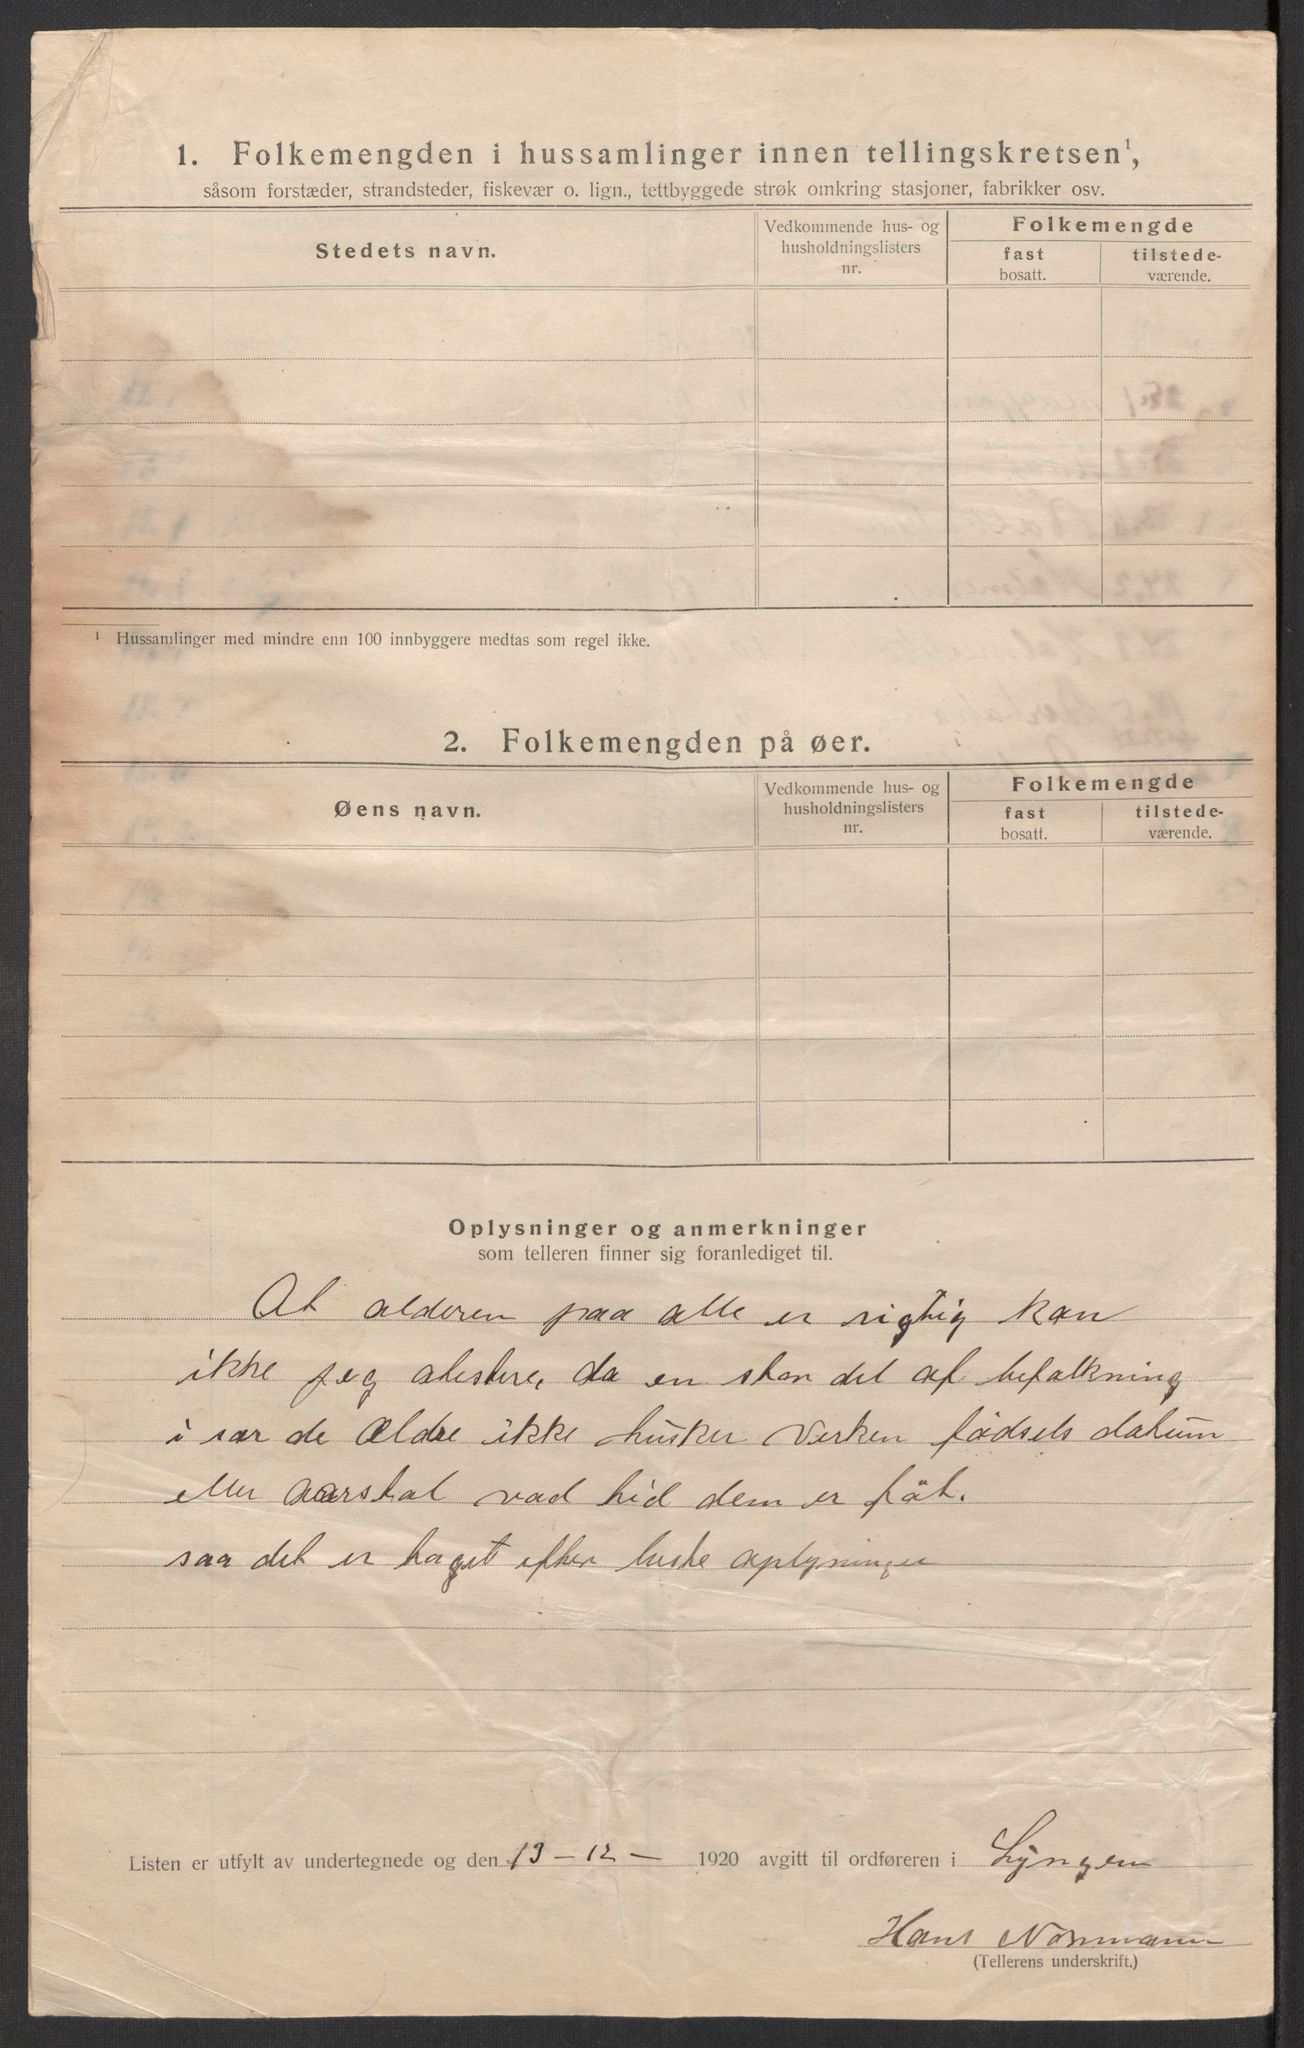 1. Folkemengden i hussamlinger innen tellingskretsen¹,
såsom forstæder, strandsteder, fiskevær o. lign., tettbyggede strøk omkring stasjoner, fabrikker osv.
Stedets navn.
Vedkommende hus- og
husholdningslisters
nr.
Folkemengde
fast
bosatt.
tilstede-
værende.
¹ Hussamlinger med mindre enn 100 innbyggere medtas som regel ikke.
2. Folkemengden på øer.
Øens navn.
Vedkommende hus- og
husholdningslisters
nr.
Folkemengde
fast
bosatt.
tilstede-
værende.
Oplysninger og anmerkninger
som telleren finner sig foranlediget til.
At alderen paa alle er rigtig kan
ikke jeg atestere, da en stor del af befolkning
i sær de Ældre ikke husker verken fødsels datum
eller aarstal vad tid dem er föt.
saa det er taget efter beste oplysninger
Listen er utfylt av undertegnede og den 13 – 12 – 1920 avgitt til ordføreren i Lyngen
Hans Normann
(Tellerens underskrift.)